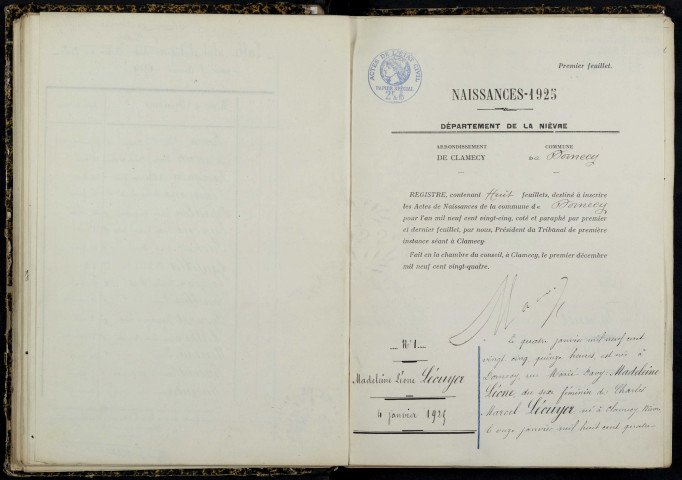 Premier feuillet.
ACTES DE L'ÉTAT CIVIL
PAPIER SPÉCIAL
NAISSANCES-1925
DÉPARTEMENT DE LA NIÈVRE
ARRONDISSEMENT
DE CLAMECY
COMMUNE
de Dornecy
REGISTRE, contenant Huit feuillets, destiné à inscrire
les Actes de Naissances de la commune de Dornecy
pour l'an mil neuf cent vingt-cinq, coté et paraphé par premier
et dernier feuillet, par nous, Président du Tribunal de première
instance séant à Clamecy.
Fait en la chambre du conseil, à Clamecy, le premier décembre
mil neuf cent vingt-quatre.
N° 1
Madeleine Léone Lécuyer
4 janvier 1925
Le quatre janvier mil neuf cent
vingt cinq, quinze heures, est née à
Dornecy, rue Marié-Davy, Madeleine
Léone, du sexe féminin de Charles
Marcel Lécuyer, né à Clamecy, Nièvre
le onze janvier mil huit cent quatre-